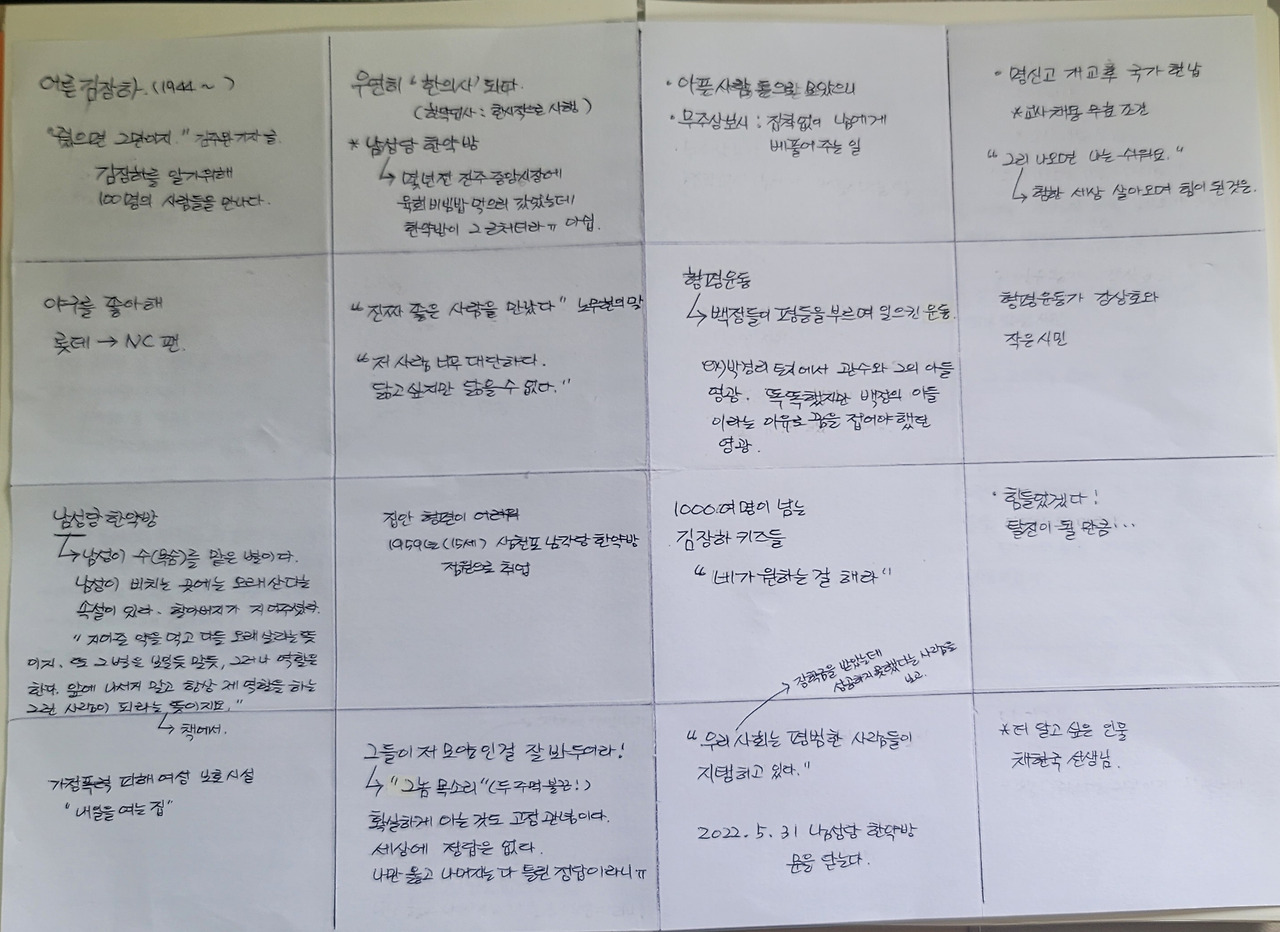 어른 김장하. (1944 ~ )
"줬으면 그만이지." 김주완 기자 글.
김장하를 알기위해
100명의 사람들을 만나다.
우연히 '한의사' 되다.
(한약업사 : 한시적으로 시행)
* 남성당 한약방
↳ 몇년전 진주 중앙시장에
육회비빔밥 먹으러 갔었는데
한약방이 그 근처더라ㅠ 아쉽.
· 아픈 사람 돈으로 모았으니
· 무주상보시 : 집착없이 남에게
베풀어 주는 일
· 명신고 개교후 국가 헌납
* 교사채용 무료 조건
"그리 나오면 나는 쉬워요."
↳ 험한 세상 살아오며 힘이 된 것은.
야구를 좋아해
롯데 → NC 팬.
"진짜 좋은 사람을 만났다" 노무현의 말
"저 사람 너무 대단하다.
닮고 싶지만 닮을 수 없다."
형평운동
↳ 백정들이 평등을 부르며 일으킨 운동.
ex) 박경리 토지에서 관수와 그의 아들
영광. 똑똑했지만 백정의 아들
이라는 이유로 꿈을 접어야 했던
영광.
형평운동가 강상호와
작은시민
남성당 한약방
↳ 남성이 수(목숨)를 맡은 별이다.
남성이 비치는 곳에는 오래산다는
속설이 있다. 할아버지가 지어주셨다.
"지어준 약을 먹고 다들 오래 살라는 뜻
이지. 또 그 별은 보일듯 말듯, 그러나 역할은
한다. 앞에 나서지 말고 항상 제 역할을 하는
그런 사람이 되라는 뜻이지요."
↳ 책에서.
집안 형편이 어려워
1959년 (15세) 삼천포 남각당 한약방
점원으로 취업
1000여명이 넘는
김장하 키즈들
"네가 원하는 걸 해라"
· 힘들었겠다!
탈진이 될 만큼...
가정폭력 피해 여성 보호시설
"내일을 여는 집"
그들이 저 모양인걸 잘 봐두어라!
↳ "그놈 목소리" (두 주먹 불끈!)
확실하게 아는 것도 고정관념이다.
세상에 정답은 없다.
나만 옳고 나머지는 다 틀린 정답이라니ㅠ
장학금을 받았는데
성공하지 못했다는 사람을
보고.
"우리 사회는 평범한 사람들이
지탱하고 있다."
2022. 5. 31 남성당 한약방
문을 닫는다.
* 더 알고 싶은 인물
채현국 선생님.